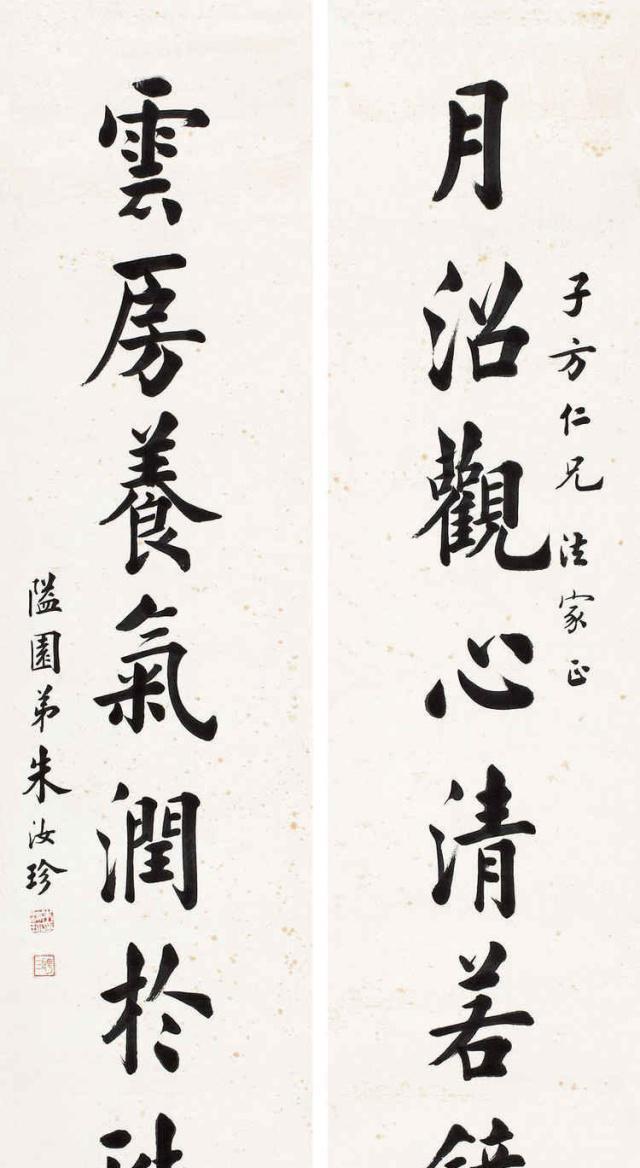 月沼觀心清若
子方仁兄法家正
雲房養氣潤於
隘園弟朱汝珍